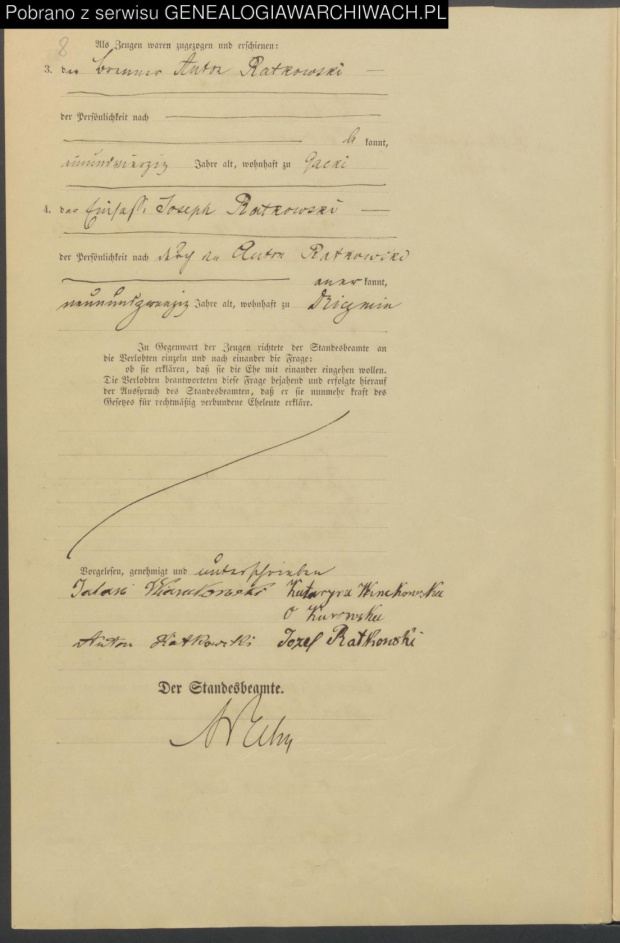 Pobrano z serwisu GENEALOGIAWARCHIWACH.PL
8
Als Zeugen waren zugezogen und erschienen:
3. der Brenner Anton Ratkowski
der Persönlichkeit nach
be kannt,
Jahre alt, wohnhaft zu Gacki
4. der Einsaß Joseph Ratkowski
der Persönlichkeit nach durch den Anton Ratkowski
aner kannt,
neunundzwanzig Jahre alt, wohnhaft zu Driczmin
In Gegenwart der Zeugen richtete der Standesbeamte an
die Verlobten einzeln und nach einander die Frage:
ob sie erklären, daß sie die Ehe mit einander eingehen wollen.
Die Verlobten beantworteten diese Frage bejahend und erfolgte hierauf
der Ausspruch des Standesbeamten, daß er sie nunmehr kraft des
Gesetzes für rechtmäßig verbundene Eheleute erkläre.
Vorgelesen, genehmigt und unterschrieben
Katarzyna
Kurowska
Anton Ratkowski Jozef Ratkowski
Der Standesbeamte.